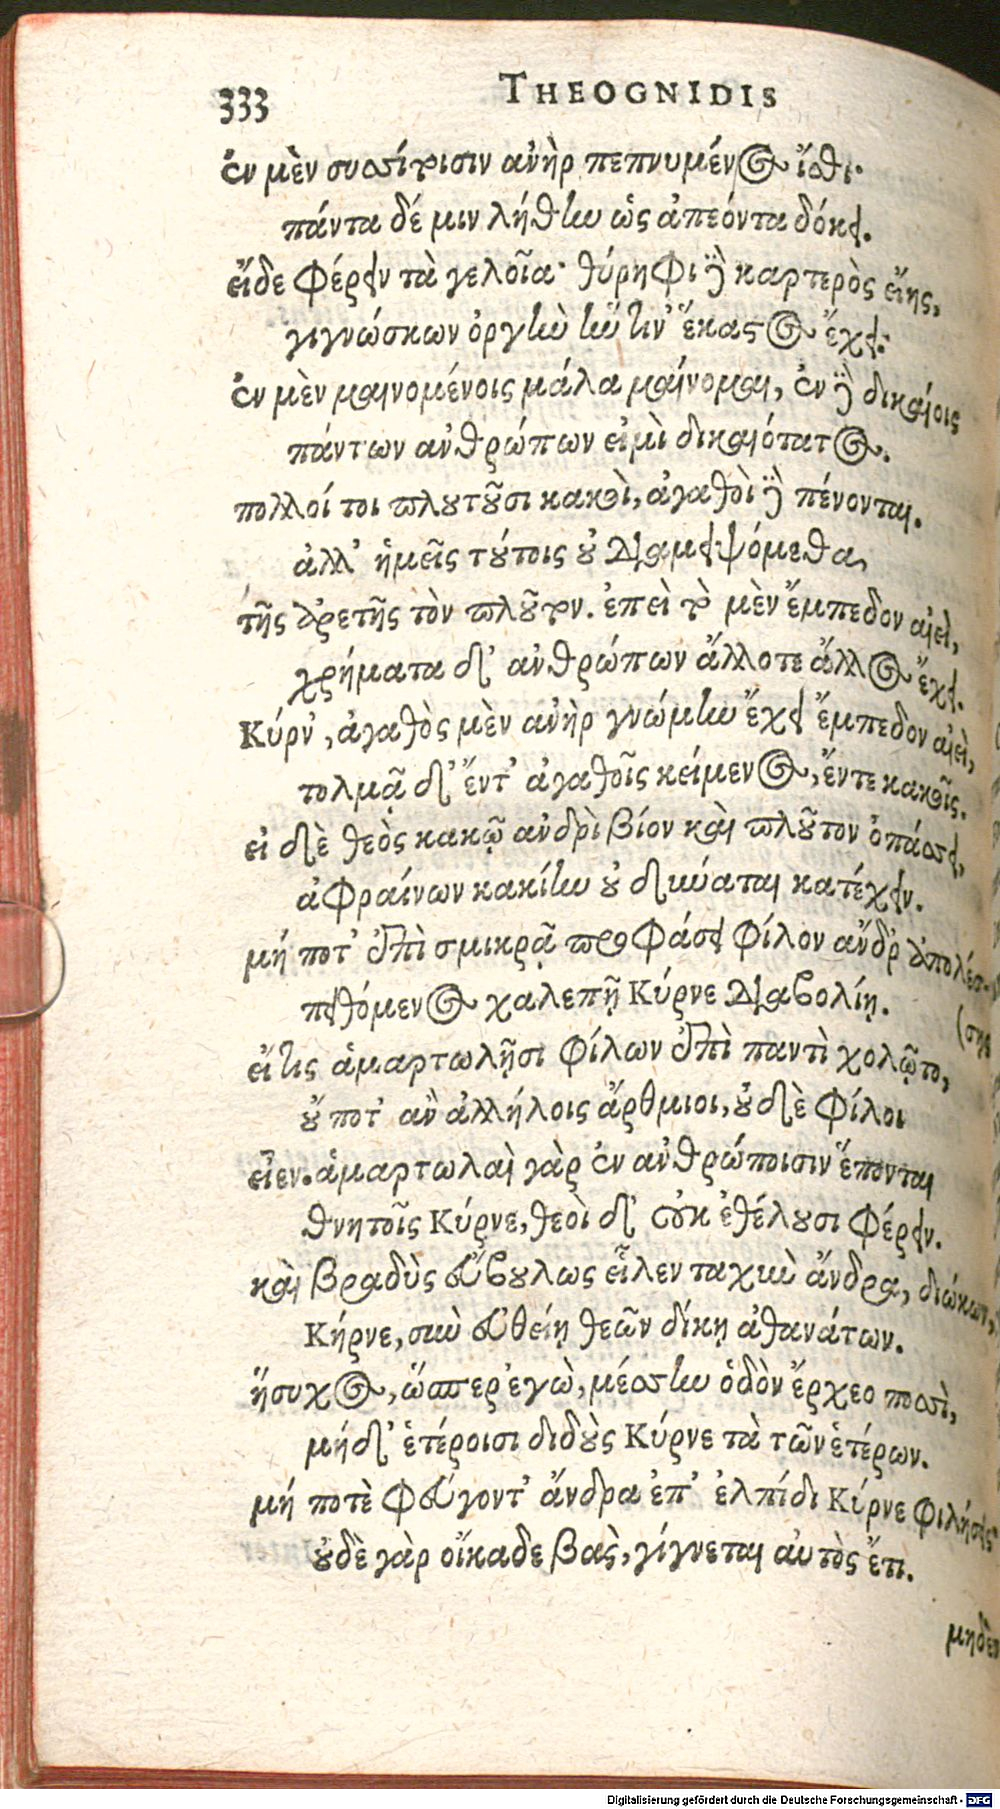 333 THEOGNIDIS
ἐν μὲν συσσίτοισιν ἀνὴρ πεπνυμένος ἴσθι·
πάντα δέ μιν λήθειν ὡς ἀπεόντα δόκει.
εἴδε φέρειν τὰ γελοῖα· θύρηφι δὲ καρτερὸς εἴης,
γιγνώσκων ὀργὴν ἥντιν' ἕκαστος ἔχει·
ἐν μὲν μαινομένοις μάλα μαίνομαι, ἐν δὲ δικαίοις
πάντων ἀνθρώπων εἰμὶ δικαιότατος.
πολλοί τοι πλουτοῦσι κακοὶ, ἀγαθοὶ δὲ πένονται.
ἀλλ' ἡμεῖς τούτοις οὐ διαμειψόμεθα,
τῆς ἀρετῆς τὸν πλοῦτον. ἐπεὶ τὸ μὲν ἔμπεδον αἰεὶ,
χρήματα δ' ἀνθρώπων ἄλλοτε ἄλλος ἔχει.
Κύρν', ἀγαθὸς μὲν ἀνὴρ γνώμην ἔχει ἔμπεδον αἰεὶ,
τολμᾷ δ' ἔντ' ἀγαθοῖς κείμενος, ἔντε κακοῖς.
εἰ δὲ θεὸς κακῷ ἀνδρὶ βίον καὶ πλοῦτον ὀπάσσει,
ἀφραίνων κακίην οὐ δύναται κατέχειν.
μή ποτ' ἐπὶ σμικρᾷ προφάσει φίλον ἄνδρ' ἀπολέσ-
πειθόμενος χαλεπῇ Κύρνε διαβολίῃ. (σης
εἴ τις ἁμαρτωλῇσι φίλων ἐπὶ παντὶ χολῷτο,
οὔ ποτ' ἂν ἀλλήλοις ἄρθμιοι, οὐδὲ φίλοι
εἶεν. ἁμαρτωλαὶ γὰρ ἐν ἀνθρώποισιν ἕπονται
θνητοῖς Κύρνε, θεοὶ δ' οὐκ ἐθέλουσι φέρειν.
καὶ βραδὺς εὔβουλως εἷλεν ταχὺν ἄνδρα, διώκων,
Κήρνε, σὺν εὐθείῃ θεῶν δίκῃ ἀθανάτων.
ἥσυχος, ὥσπερ ἐγὼ, μέσσην ὁδὸν ἔρχεο ποσὶ,
μήδ' ἑτέροισι διδοὺς Κύρνε τὰ τῶν ἑτέρων.
μή ποτὲ φεύγοντ' ἄνδρα ἐπ' ἐλπίδι Κύρνε φιλήσῃς
οὐδὲ γὰρ οἴκαδε βὰς, γίγνεται αὐτὸς ἔτι.
μηδὲν
Digitalisierung gefördert durch die Deutsche Forschungsgemeinschaft - DFG